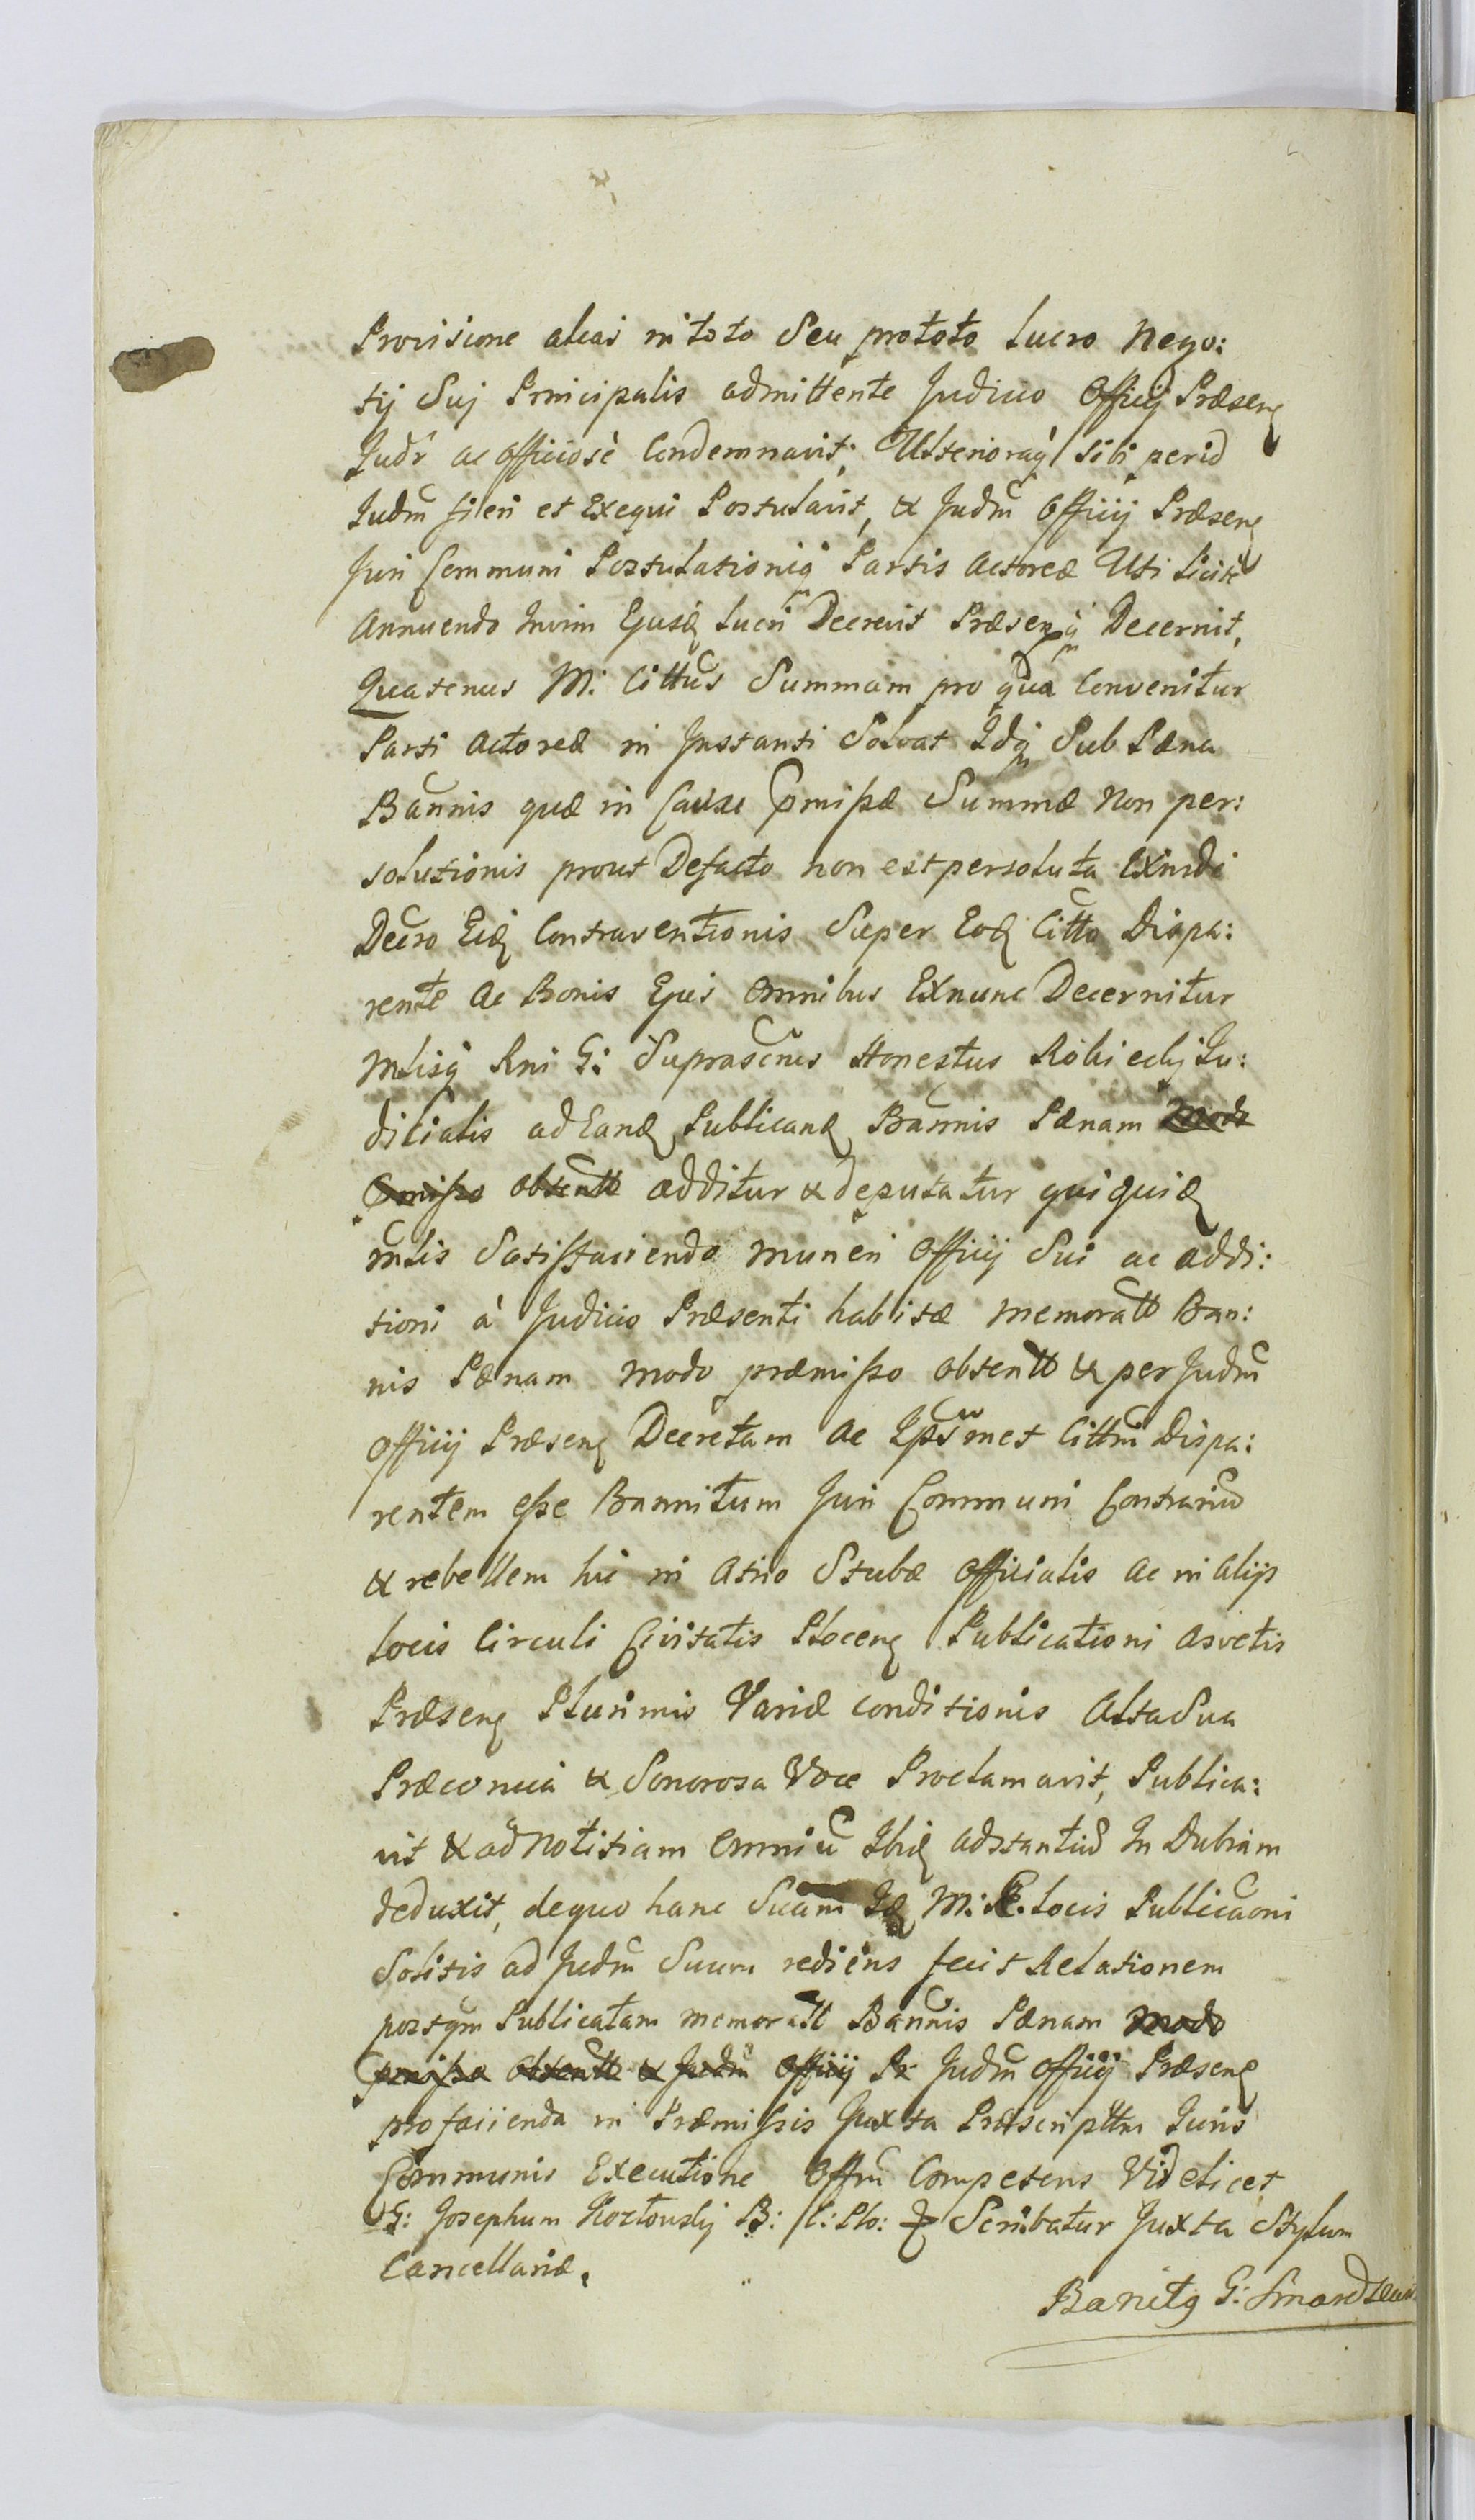 Provisione alias in toto Seu pro toto Lucro Nego:
tij Suj Principalis admittente Judicio Officij Præsenę
Judr ac officiosè Condemnavit; Ulterioraq sibi perid
Judm fileri et Exequi Postulavit, & Judm Officij Præsenę
Juri Communi Postulationiq Partis Actoreæ Uti licite
Annuendo Ejusd Lucri Decrevit Præsenq Decernit,
Quatenus M: Cittus Summam pro qua Convenitur
Parti Actoreæ in Instanti Solvat Idq Sub Pæna
Bannis quæ in Causa pmißæ Summæ Non per:
solutionis prout Defacto non est persoluta
Decro Eid Contraventionis Super Eod Citto Dispa:
rente Ac Bonis Ejus Omnibus Exnunc Decernitur
Mlisq Rni G: Suprascrus Honestus Ju:
dicialis ad Eand Publicand Bannis Pænam Modo
pmißo obsentt additur & deputatur qui quid
mlis Satisfaciendo muneri Officij Sui ac addi:
tioni à Judicio Præsenti habitæ memoratt Ban:
nis Pænam modo præmißo obtentt & per Judm
Officij Præsenę Decretam Ac Ipsmet Cittm Dispa:
rentem eße Bannitum Juri Communi Contrariu
& rebellem hic in Atrio Stubæ Officialis Ac in Alijs
Locis Circuli Civitatis Plocenę Publicationi asvetis
Præsenę Plurimis Variæ conditionis Alta Sua
Præconica & Sonorosa Voce Proclamavit, Publica:
vit & ad Notitiam Omniu Ibid adstantiu In Dubiam
deduxit, de quo hanc Suam Id M: R. Locis Publicaoni
Solitis ad Judm Suum rediens fecit Relationem
postqm Publicatam memoratt Bannis Pænam Modo
pmißo obtentt & Judm Officij Pr Judm Officij Præsenę
pro facienda in Præmißis Juxta Præscripttm Juris
Communis Executione Offm Competens Videlicet
G: Josephum Kozłowskij B: C: Plo: & Scribatur Juxta Stylum
Cancellariæ.
Banitą G: